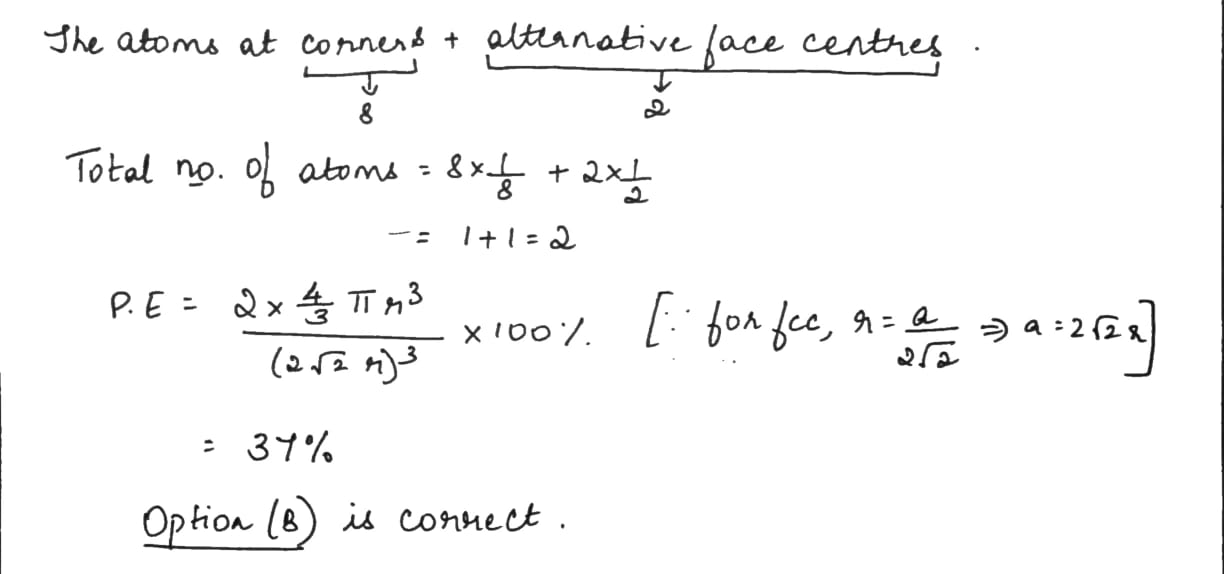 The atoms at corners + alternative face centres .
8 2
Total no. of atoms = 8 × 1/8 + 2 × 1/2
- = 1 + 1 = 2
P.E = 2 × 4/3 π r³ / (2√2 r)³ × 100 % [∵ for fcc, r = a/2√2 ⇒ a = 2√2 r]
= 37%
Option (B) is correct .